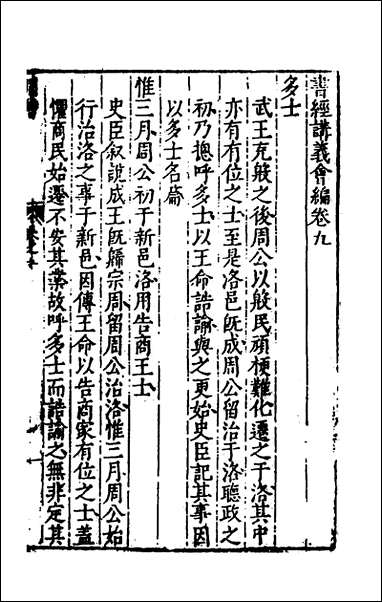 書經講義會編卷九
多士
武王克殷之後周公以殷民頑梗難化遷之于洛其中
亦有有位之士至是洛邑既成周公留治于洛聽政之
初乃摠呼多士以王命誥諭與之更始史臣記其事因
以多士名篇
惟三月周公初于新邑洛用告商王士
史臣叙說成王既歸宗周留周公治洛惟三月周公始
行治洛之事于新邑因傳王命以告商家有位之士蓋
懼商民始遷不安其業故呼多士而誥諭之無非定其